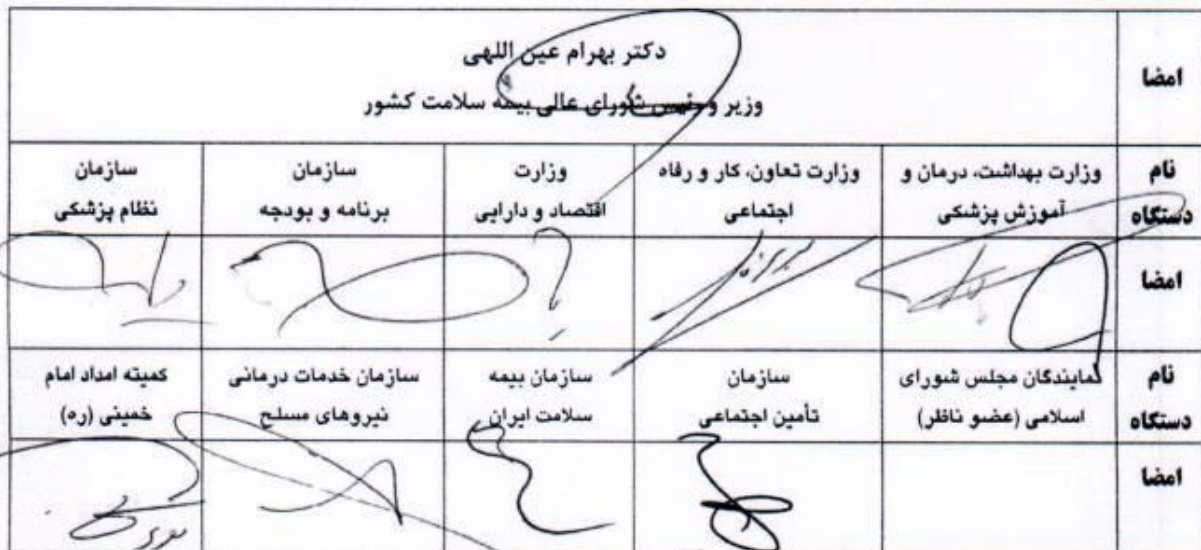 امضا
دکتر بهرام عین اللهی
وزیر و رئیس شورای عالی بیمه سلامت کشور
نام دستگاه
وزارت بهداشت، درمان و
آموزش پزشکی
وزارت تعاون، کار و رفاه
اجتماعی
وزارت
اقتصاد و دارایی
سازمان
برنامه و بودجه
سازمان
نظام پزشکی
امضا
نام دستگاه
نمایندگان مجلس شورای
اسلامی (عضو ناظر)
سازمان
تأمین اجتماعی
سازمان بیمه
سلامت ایران
سازمان خدمات درمانی
نیروهای مسلح
کمیته امداد امام
خمینی (ره)
امضا